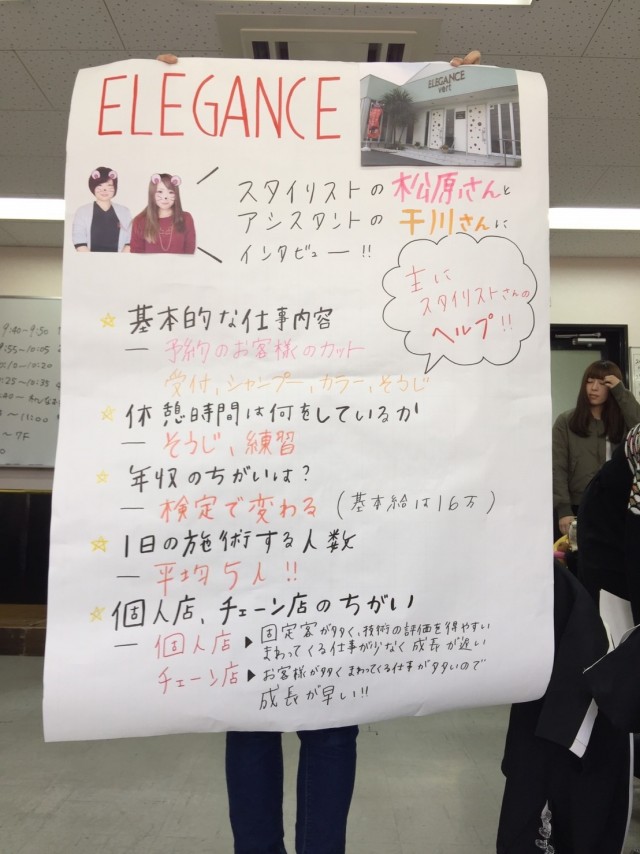 ELEGANCE
ELEGANCE
vert
スタイリストの松原さんと
アシスタントの干川さんに
インタビュー!!
主に
スタイリストさんの
ヘルプ!!
☆基本的な仕事内容
— 予約のお客様のカット
受付、シャンプー、カラー、そうじ
☆休憩時間は何をしているか
— そうじ、練習
☆年収のちがいは?
— 検定で変わる (基本給は16万)
☆1日の施術する人数
— 平均5人!!
☆個人店、チェーン店のちがい
— 個人店▶固定客が多く、技術の評価を得やすい
まわってくる仕事が少なく成長が遅い
チェーン店▶お客様が多くまわってくる仕事が多いので
成長が早い!!
9:40~9:50
9:55~10:05
10~10:20
25~10:35
~11:00
~7F